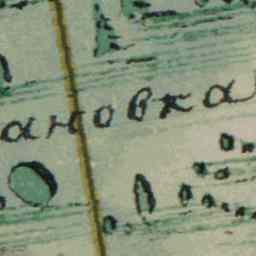 ановка